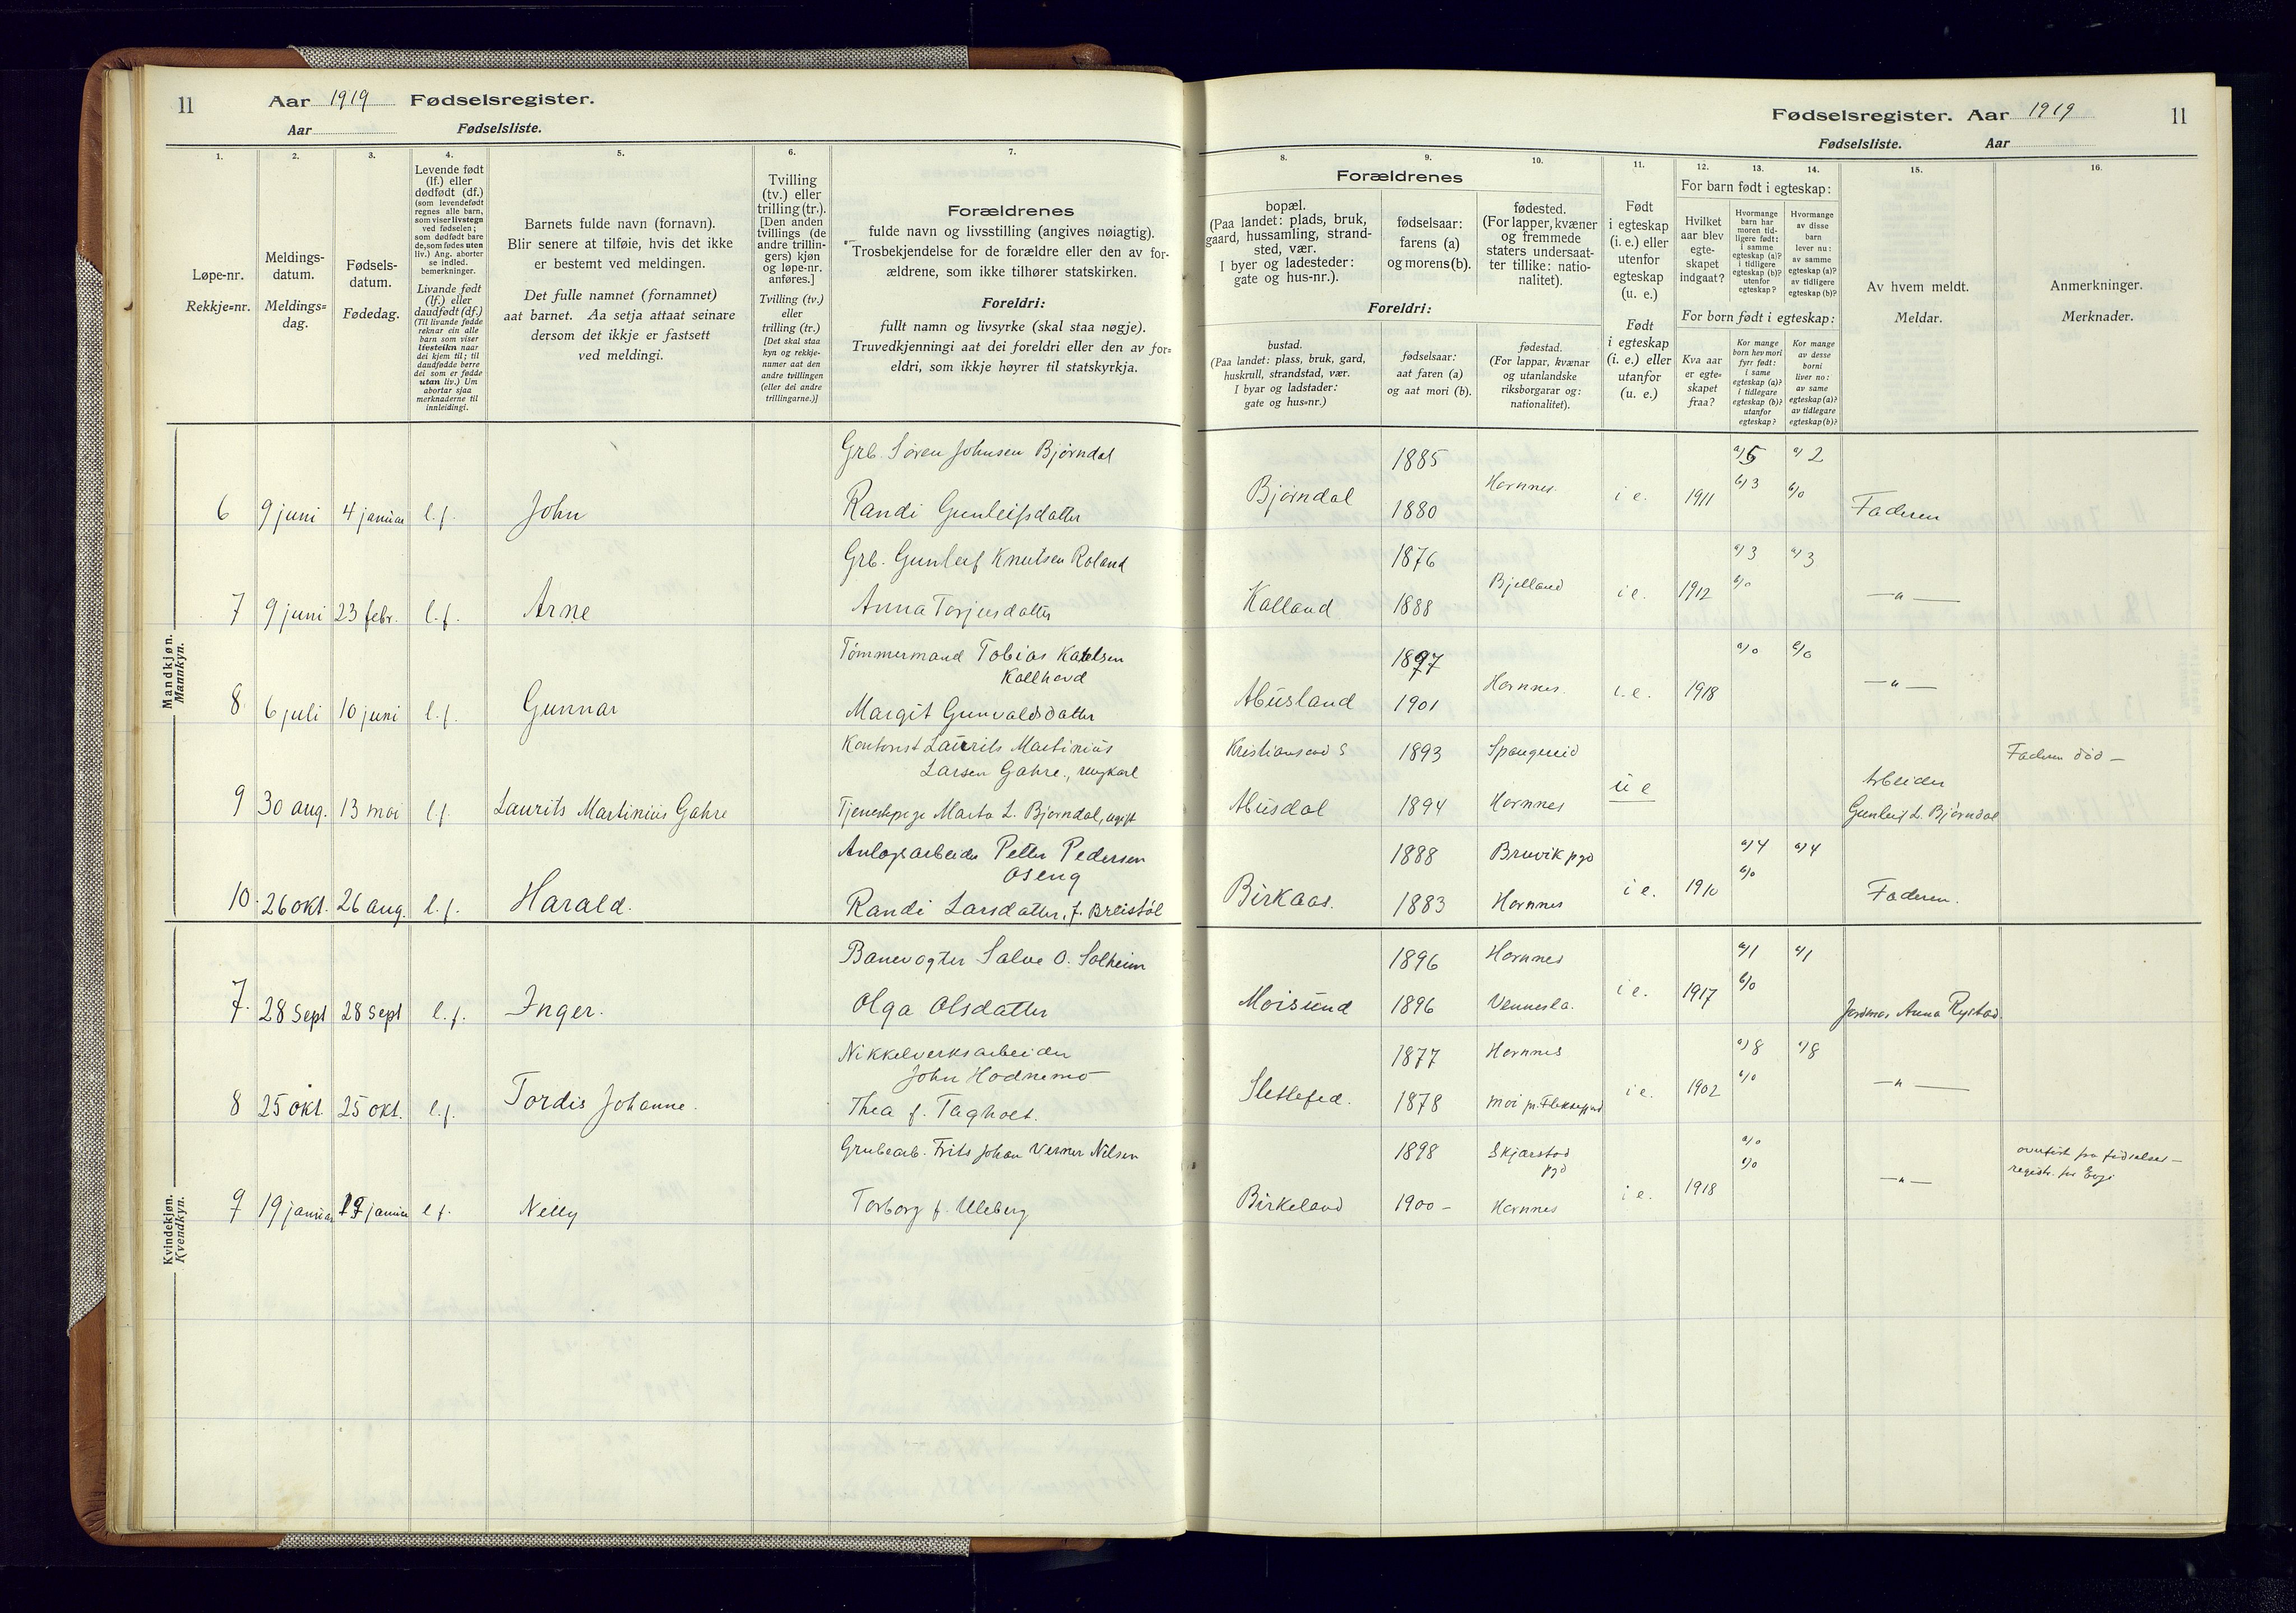 11
Aar 1919 Fødselsregister.
Aar Fødselsliste.
1.
2.
3.
4.
5.
6.
7.
Løpe-nr.
Rekkje=nr.
Meldings-
datum.
Meldings=
dag.
Fødsels-
datum.
Fødedag.
Levende født
(lf.) eller
dødfødt (df.)
(som levendefødt
regnes alle barn,
som viser livstegn
ved fødselen;
som dødfødt bare
de, som fødes uten
liv.) Ang. aborter
se indled.
bemerkninger.
Livande født
(lf.) eller
daudfødt (df.)
(Til livande fødde
reknar ein alle
barn som viser
livsteikn naar
dei kjem til; til
daudfødde berre
dei som er fødde
utan liv.) Um
abortar sjaa
merknaderne til
innleidingi.
Barnets fulde navn (fornavn).
Blir senere at tilføie, hvis det ikke
er bestemt ved meldingen.
Det fulle namnet (fornamnet)
aat barnet. Aa setja attaat seinare
dersom det ikkje er fastsett
ved meldingi.
Tvilling
(tv.) eller
trilling (tr.).
[Den anden
tvillings (de
andre trillin-
gers) kjøn
og løpe-nr.
anføres.]
Tvilling (tv.)
eller
trilling (tr.)
[Det skal staa
kyn og rekkje-
numer aat den
andre tvillingen
(eller dei andre
trillingarne.)]
Forældrenes
fulde navn og livsstilling (angives nøiagtig).
Trosbekjendelse for de forældre eller den av for-
ældrene, som ikke tilhører statskirken.
Foreldri:
fullt namn og livsyrke (skal staa nøgje).
Truvedkjenningi aat dei foreldri eller den av for=
eldri, som ikkje høyrer til statskyrkja.
Mandkjøn.
Mannkyn.
Grb. Søren Johnsen Bjørndal
6 9 juni 4 januar l.f. John Randi Gunleifsdatter
Grb. Gunleif Knutsen Roland
7 9 juni 23 febr. l.f. Arne Anna Torjusdatter
Tømmermand Tobias
8 6 juli 10 juni l.f. Gunnar Margit Gunvaldsdatter
Kontorist Laurits Martinius
Larsen Gahre, ungkarl
9 30 aug. 13 mai l.f. Laurits Martinius Gahre Tjenestepige Marta L. Bjørndal, ugift
Anlægsarbeider Petter Pedersen
Oseng
10. 26 okt. 26 aug. l.f. Harald. Randi Larsdatter, f. Breistöl
Kvindekjøn.
Kvendkyn.
Banevogter Salve O. Solheim
7. 28 Sept 28 Sept l.f. Inger. Olga Olsdatter
Nikkelverksarbeider
John Hodnemo
8 25 okt. 25 okt. l.f. Tordis Johanne. Thea f. Tagholt.
Grubearb. Frits Johan Verner Nilsen
9 19 januar januar l.f. Nelly Torborg f. Uleberg
Fødselsregister. Aar 1919
11
Fødselsliste. Aar
8.
9.
10.
11.
12.
13.
14.
15.
16.
Forældrenes
bopæl.
(Paa landet: plads, bruk,
gaard, hussamling, strand-
sted, vær.
I byer og ladesteder:
gate og hus-nr.).
fødselsaar:
farens (a)
og morens (b).
fødested.
(For lapper, kvæner
og fremmede
staters undersaat-
ter tillike: natio-
nalitet).
Foreldri:
bustad.
(Paa landet: plass, bruk, gard,
huskrull, strandstad, vær.
I byar og ladstader:
gate og hus=nr.)
fødselsaar:
aat faren (a)
og aat mori (b).
fødestad.
(For lappar, kvænar
og utanlandske
riksborgarar og:
nationalitet).
Født
i egteskap
(i. e.) eller
utenfor
egteskap
(u. e.)
Født
i egteskap
(i. e.) eller
utanfor
(u. e.)
For barn født i egteskap:
Hvilket
aar blev
egte-
skapet
indgaat?
Hvormange
barn har
moren tid-
ligere født:
i samme
egteskap (a)?
i tidligere
egteskap (b)?
utenfor
egteskap?
Hvormange
av disse
barn
lever nu:
av samme
egteskap (a)?
av tidligere
egteskap (b)?
For born født i egteskap:
Kva aar
er egte=
skapet
fraa?
Kor mange
born hev mori
fyrr født:
i same
egteskap (a)?
i tidlegare
egteskap (b)?
utanfor
egteskap?
Kor mange
av desse
borni
liver no:
av same
egteskap (a)?
av tidlegare
egteskap (b)?
Av hvem meldt.
Meldar.
Anmerkninger.
Merknader.
1885 a) 5 a) 2
Bjørndal 1880 Hornnes. i e. 1911 b) 3 b) 0 Faderen
1876 a) 3 a) 3
Kalland 1888 Bjelland i e. 1912 b) 0 — " —
1897 a) 0
Abusland 1901 Hornnes. i. e. 1918 — " —
Kristiansand S 1893 Spangereid Faderen död —
Abusdal 1894 Hornnes u e Arbeider
Gunleif L. Bjørndal
1888 Bruvik pgd a) 4 a) 4
Birkaas. 1883 Hornnes i e. 1910 b) 0 Faderen.
1896 Hornnes a) 1 a) 1
Moisund 1896 Vennesla. i e. 1917 b) 0 Jordmor Anna Rystad
1877 Hornnes a) 8 a) 8
1878 i e. 1902 b) 0 — " —
1898 Skjærstad
pgd a) 0
Birkeland 1900 — Hornnes i e. 1918 — " — overført fra fødsels-
registr. for Evje